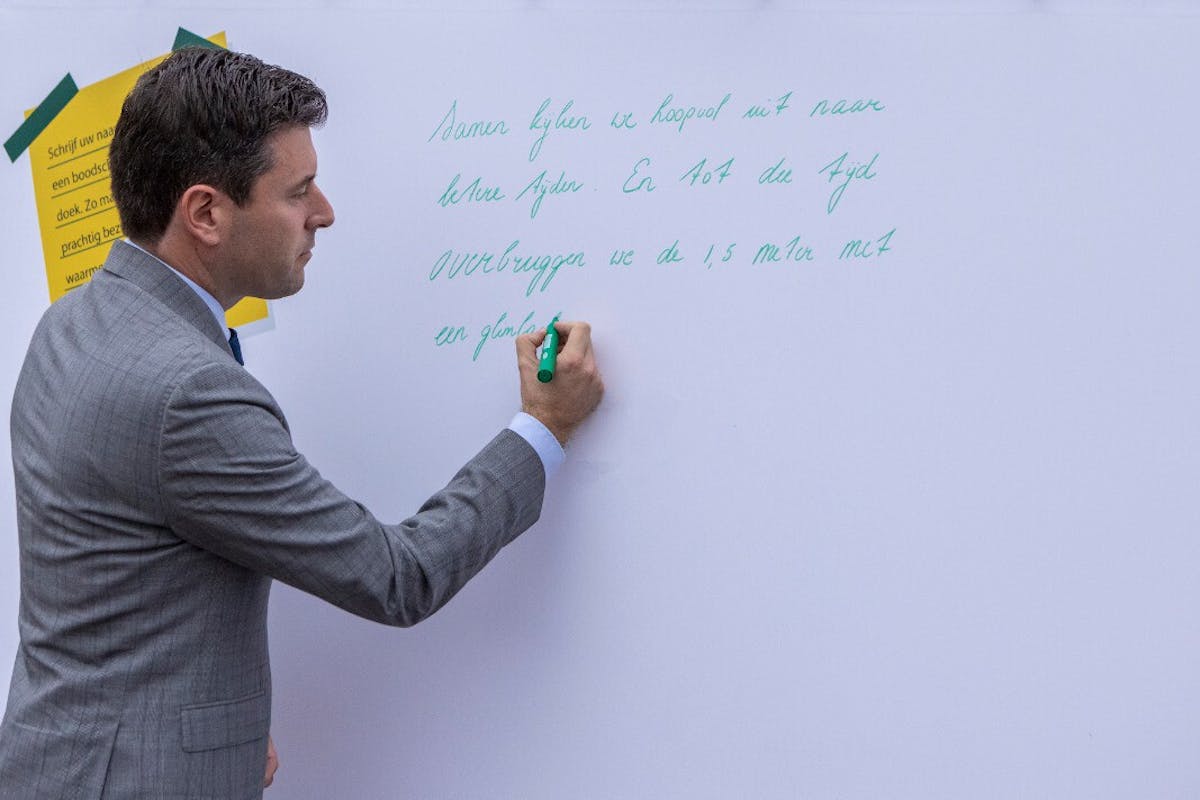 Schrijf uw naa
een boodsch
doek. Zo ma
prachtig bez
waarme
Samen kijken we hoopvol uit naar
betere tijden. En tot die tijd
overbruggen we de 1,5 meter met
een glimla